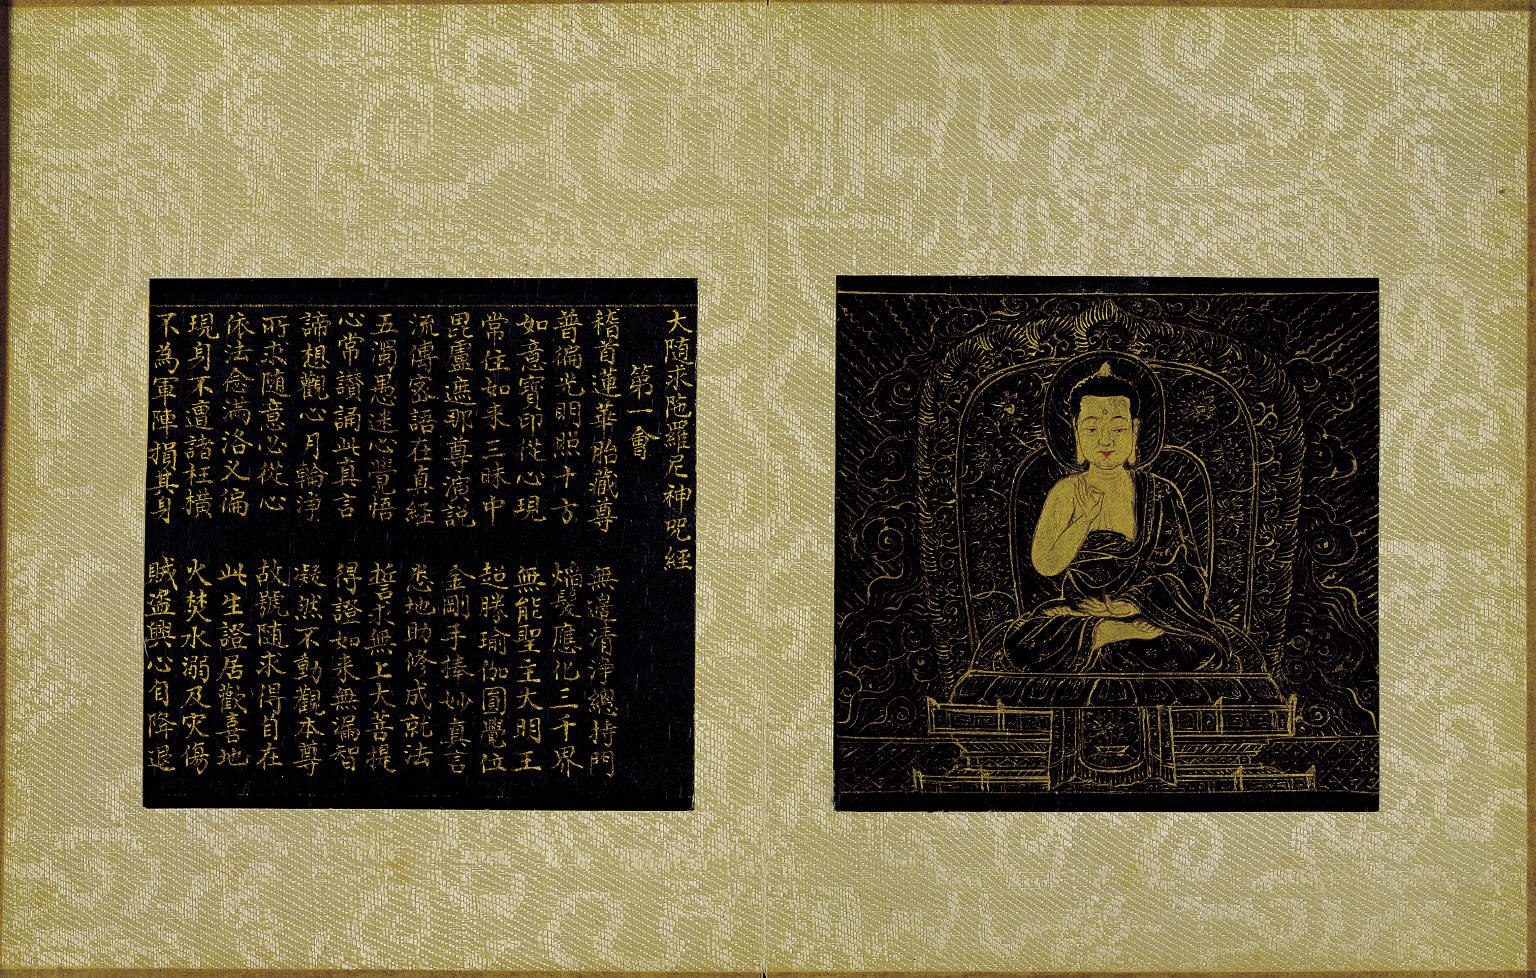 大隨求陁羅尼神呪經
第一會
稽首蓮華胎藏尊　無邊清淨總持門
普徧光明照十方　燄髮應化三千界
如意寶印從心現　無能聖主大明王
常住如来三昧中　超勝瑜伽圓覺位
毘盧遮那尊演説　金剛手捧妙真言
流傳宻語在真經　悉地助修成就法
五濁愚迷心覺悟　誓求無上大菩提
心常讃誦此真言　得證如来無漏智
諦想觀心月輪淨　凝然不動觀本尊
所求隨意必從心　故號随求得自在
依法念滿洛叉徧　此生證居歡喜地
現身不遭諸枉横　火焚水溺及灾傷
不為軍陣損其身　賊盗興心自降退